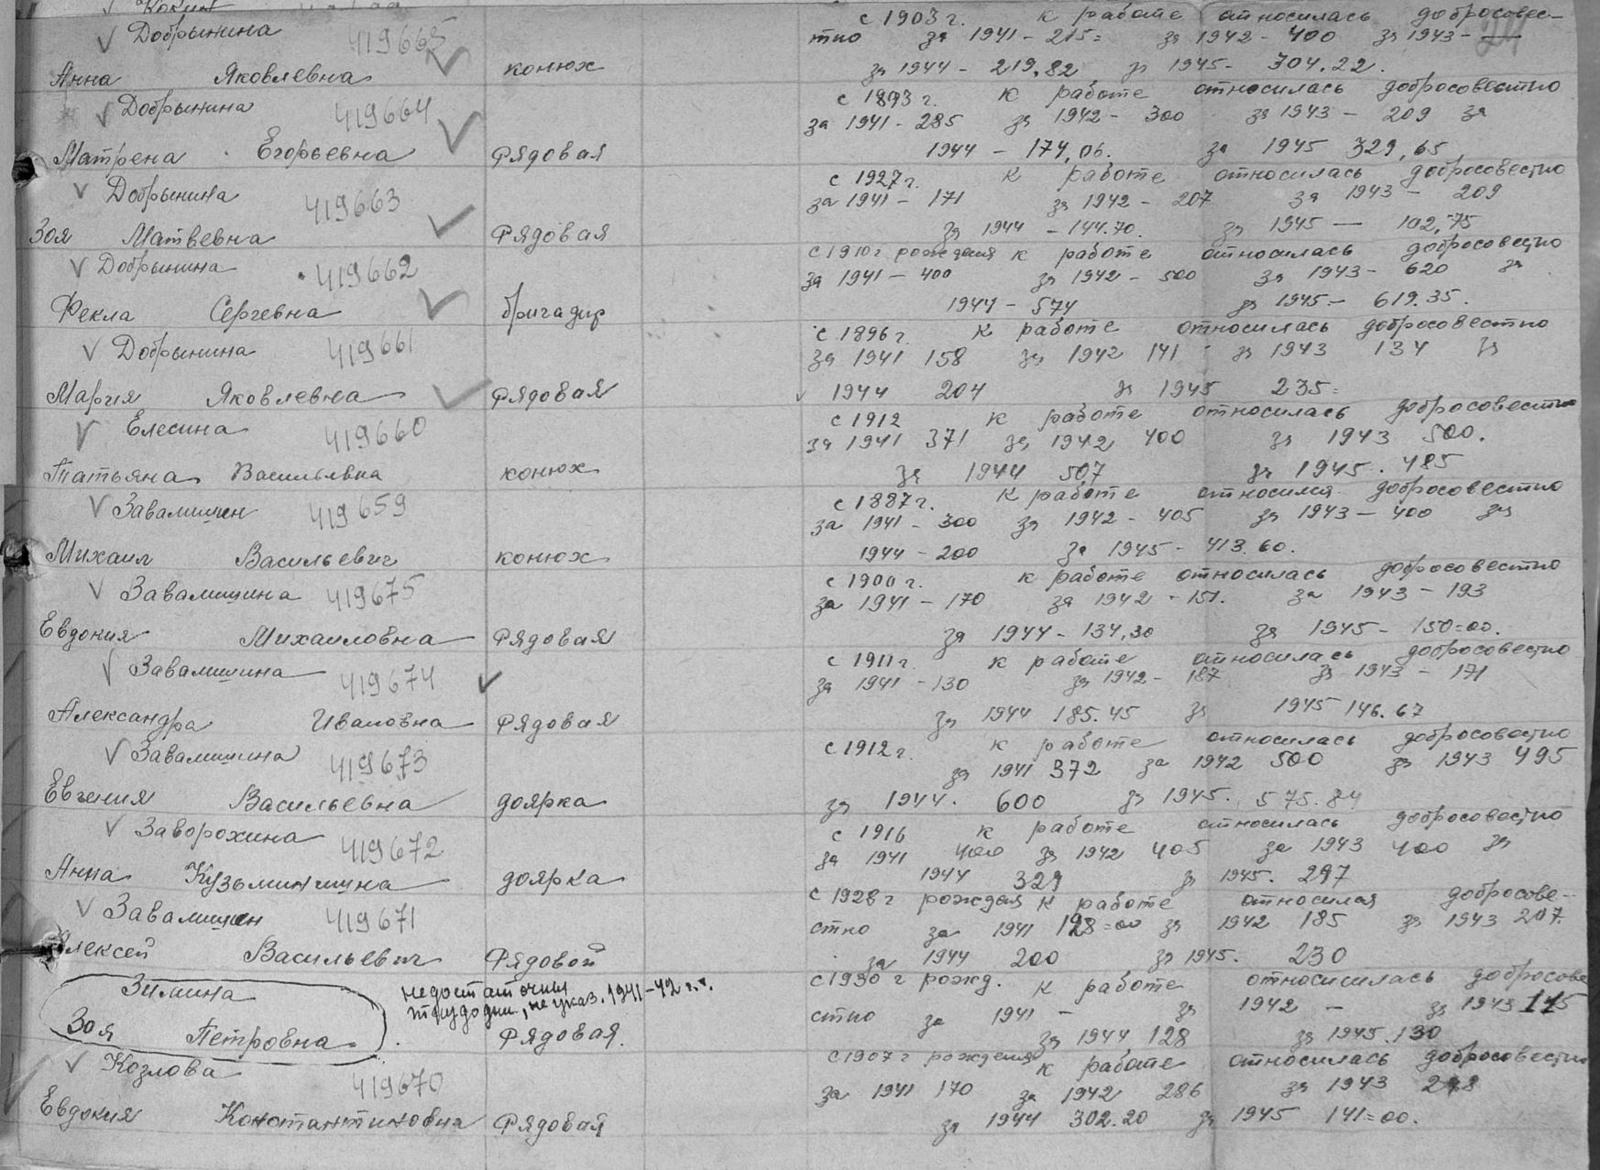 Кокин
Добрынина 419665 с 1903 г. к работе относилась добросове-
стно за 1941 - 215= за 1942 - 400 за 1943 - —
Анна Яковлевна конюх за 1944 - 219.82 за 1945 - 304.22.
Добрынина 419664 с 1893 г. к работе относилась добросовестно
за 1941 - 285 за 1942 - 300 за 1943 - 209 за
Матрена Егорьевна Рядовая 1944 - 174,06. за 1945 329,65
Добрынина 419663 с 1927 г. к работе относилась добросовестно
за 1941 - 171 за 1942 - 207 за 1943 - 209
Зоя Матвевна Рядовая за 1944 - 144.70. за 1945 — 102,75
Добрынина 419662 с 1910 г рождения к работе относилась добросовестно
за 1941 - 400 за 1942 - 500 за 1943 - 620 за
Фекла Сергевна бригадир 1944 - 574 за 1945 - 619.35.
Добрынина 419661 с 1896 г. к работе относилась добросовестно
за 1941 158 за 1942 141 за 1943 134 за
Мария Яковлевна Рядовая 1944 204 за 1945 235=
Елесина 419660 с 1912 к работе относилась добросовестно
за 1941 371 за 1942 400 за 1943 500.
Татьяна Васильевна конюх за 1944 507 за 1945. 485
Завалишин 419659 с 1887 г. к работе относился добросовестно
за 1941 - 300 за 1942 - 405 за 1943 - 400 за
Михаил Васильевич конюх 1944 - 200 за 1945 - 413.60.
Завалишина 419675 с 1900 г. к работе относилась добросовестно
за 1941 - 170 за 1942 - 151. за 1943 - 193
Евдокия Михаиловна Рядовая за 1944 - 134,30 за 1945 - 150=00.
Завалишина 419674 с 1911 г. к работе относилась добросовестно
за 1941 - 130 за 1942 - 187 за 1943 - 171
Александра Ивановна Рядовая за 1944 185.45 за 1945 146.67
Завалишина 419673 с 1912 г. к работе относилась добросовестно
за 1941 372 за 1942 500 за 1943 495
Евгения Васильевна доярка за 1944. 600 за 1945. 575.84
Заворохина 419672 с 1916 к работе относилась добросовестно
за 1941 400 за 1942 405 за 1943 400 за
Анна Кузьминична доярка 1944 329 за 1945. 297
Завалишин 419671 с 1928 г рождения к работе относился добросове-
стно за 1941 198=00 за 1942 185 за 1943 207.
Алексей Васильевич Рядовой за 1944 200 за 1945. 230
Зимина недостаточни с 1930 г рожд. к работе относилась добросове
трудодни, не указ. 1941-42 г.г. стно за 1941 - за 1942 - за 1943 115
Зоя Петровна Рядовая. за 1944 128 за 1945. 130
Козлова 419670 с 1907 г рождения к работе относилась добросовестно
за 1941 170 за 1942 286 за 1943 298
Евдокия Константиновна Рядовая за 1944 302.20 за 1945 141=00.